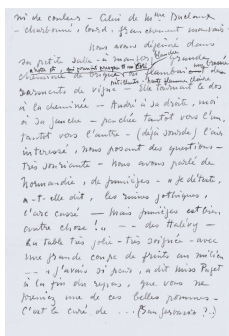 ni de couleur - Celui de Mme Duclaux
- charbonné, lourd, franchement mauvais -
Nous avons déjeuné dans
sa petite salle à manger blanche, grande
cheminée de brique où flambait un
sarments de vigne - Elle tournant le dos
à la cheminée - André à sa droite, moi
à sa gauche - penchée tantôt vers l'un
tantôt vers l'autre - (déjà sourde) l'air
intéressé, nous posant des questions -
Très souriante - Nous avons parlé de
Normandie, de Jumièges - "Je déteste,
a-t-elle dit, les ruines gothiques,
l'arc cassé - Mais Jumièges est bien
autre chose !" - - - des Halévy -
La table très jolie - très soignée - avec
une grande coupe de fruits au milieu
- - "J'avais si peur, a dit Miss Paget
à la fin du repas, que vous ne
preniez une de ces belles pommes -
C'est le curé de ... (San Gervasio ?)